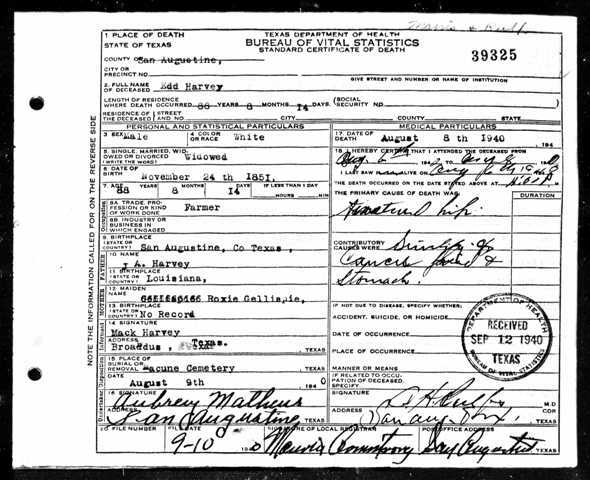 TEXAS DEPARTMENT OF HEALTH
BUREAU OF VITAL STATISTICS
STANDARD CERTIFICATE OF DEATH
39325
1 PLACE OF DEATH
STATE OF TEXAS
COUNTY OF San Augustine,
CITY OR PRECINCT NO.
GIVE STREET AND NUMBER OR NAME OF INSTITUTION
2. FULL NAME OF DECEASED Edd Harvey
LENGTH OF RESIDENCE WHERE DEATH OCCURRED 88 YEARS 8 MONTHS 14 DAYS (SOCIAL SECURITY NO.
RESIDENCE OF THE DECEASED (STREET AND NO. CITY COUNTY STATE
PERSONAL AND STATISTICAL PARTICULARS
3 SEX Male 4 COLOR OR RACE White
5 SINGLE, MARRIED, WIDOWED OR DIVORCED (WRITE THE WORD) Widowed
6 DATE OF BIRTH November 24 th 1851.
7. AGE 88 YEARS 8 MONTHS 14 DAYS IF LESS THAN 1 DAY HOURS MIN.
8A. TRADE, PROFESSION OR KIND OF WORK DONE Farmer
8B. INDUSTRY OR BUSINESS IN WHICH ENGAGED
9. BIRTHPLACE (STATE OR COUNTRY) San Augustine, Co Texas,
10 NAME A. Harvey
11 BIRTHPLACE (STATE OR COUNTRY) Louisiana,
12 MAIDEN NAME Roxie Gellispie,
13 BIRTHPLACE (STATE OR COUNTRY) No Record
14 SIGNATURE Mack Harvey
ADDRESS Broaddus, Texas. TEXAS
15 PLACE OF BURIAL OR REMOVAL Macune Cemetery TEXAS
DATE August 9th 1940
16 SIGNATURE Aubrey Mathews
ADDRESS San Augustine, TEXAS
MEDICAL PARTICULARS
17 DATE OF DEATH August 8 th 1940 194
18 I HEREBY CERTIFY THAT I ATTENDED THE DECEASED FROM
Aug 194 TO Aug 8 1940
I LAST SAW ALIVE ON Aug 1940
THE DEATH OCCURRED ON THE DATE STATED ABOVE AT M
THE PRIMARY CAUSE OF DEATH WAS: DURATION
CONTRIBUTORY CAUSES WERE Senility &
Cancer &
Stomach
IF NOT DUE TO DISEASE, SPECIFY WHETHER:
ACCIDENT, SUICIDE, OR HOMICIDE
DATE OF OCCURRENCE
PLACE OF OCCURRENCE
MANNER OR MEANS
IF RELATED TO OCCUPATION OF DECEASED, SPECIFY
SIGNATURE M D
ADDRESS San Aug Tex. COR TEXAS
DEPARTMENT OF HEALTH
RECEIVED
SEP 12 1940
TEXAS
BUREAU OF VITAL STATISTICS
FILE NUMBER FILE DATE SIGNATURE OF LOCAL REGISTRAR POSTOFFICE ADDRESS
9-10 1940 Armstrong San Augustine TEXAS
NOTE THE INFORMATION CALLED FOR ON THE REVERSE SIDE
Occupation
FATHER
MOTHER
Informant